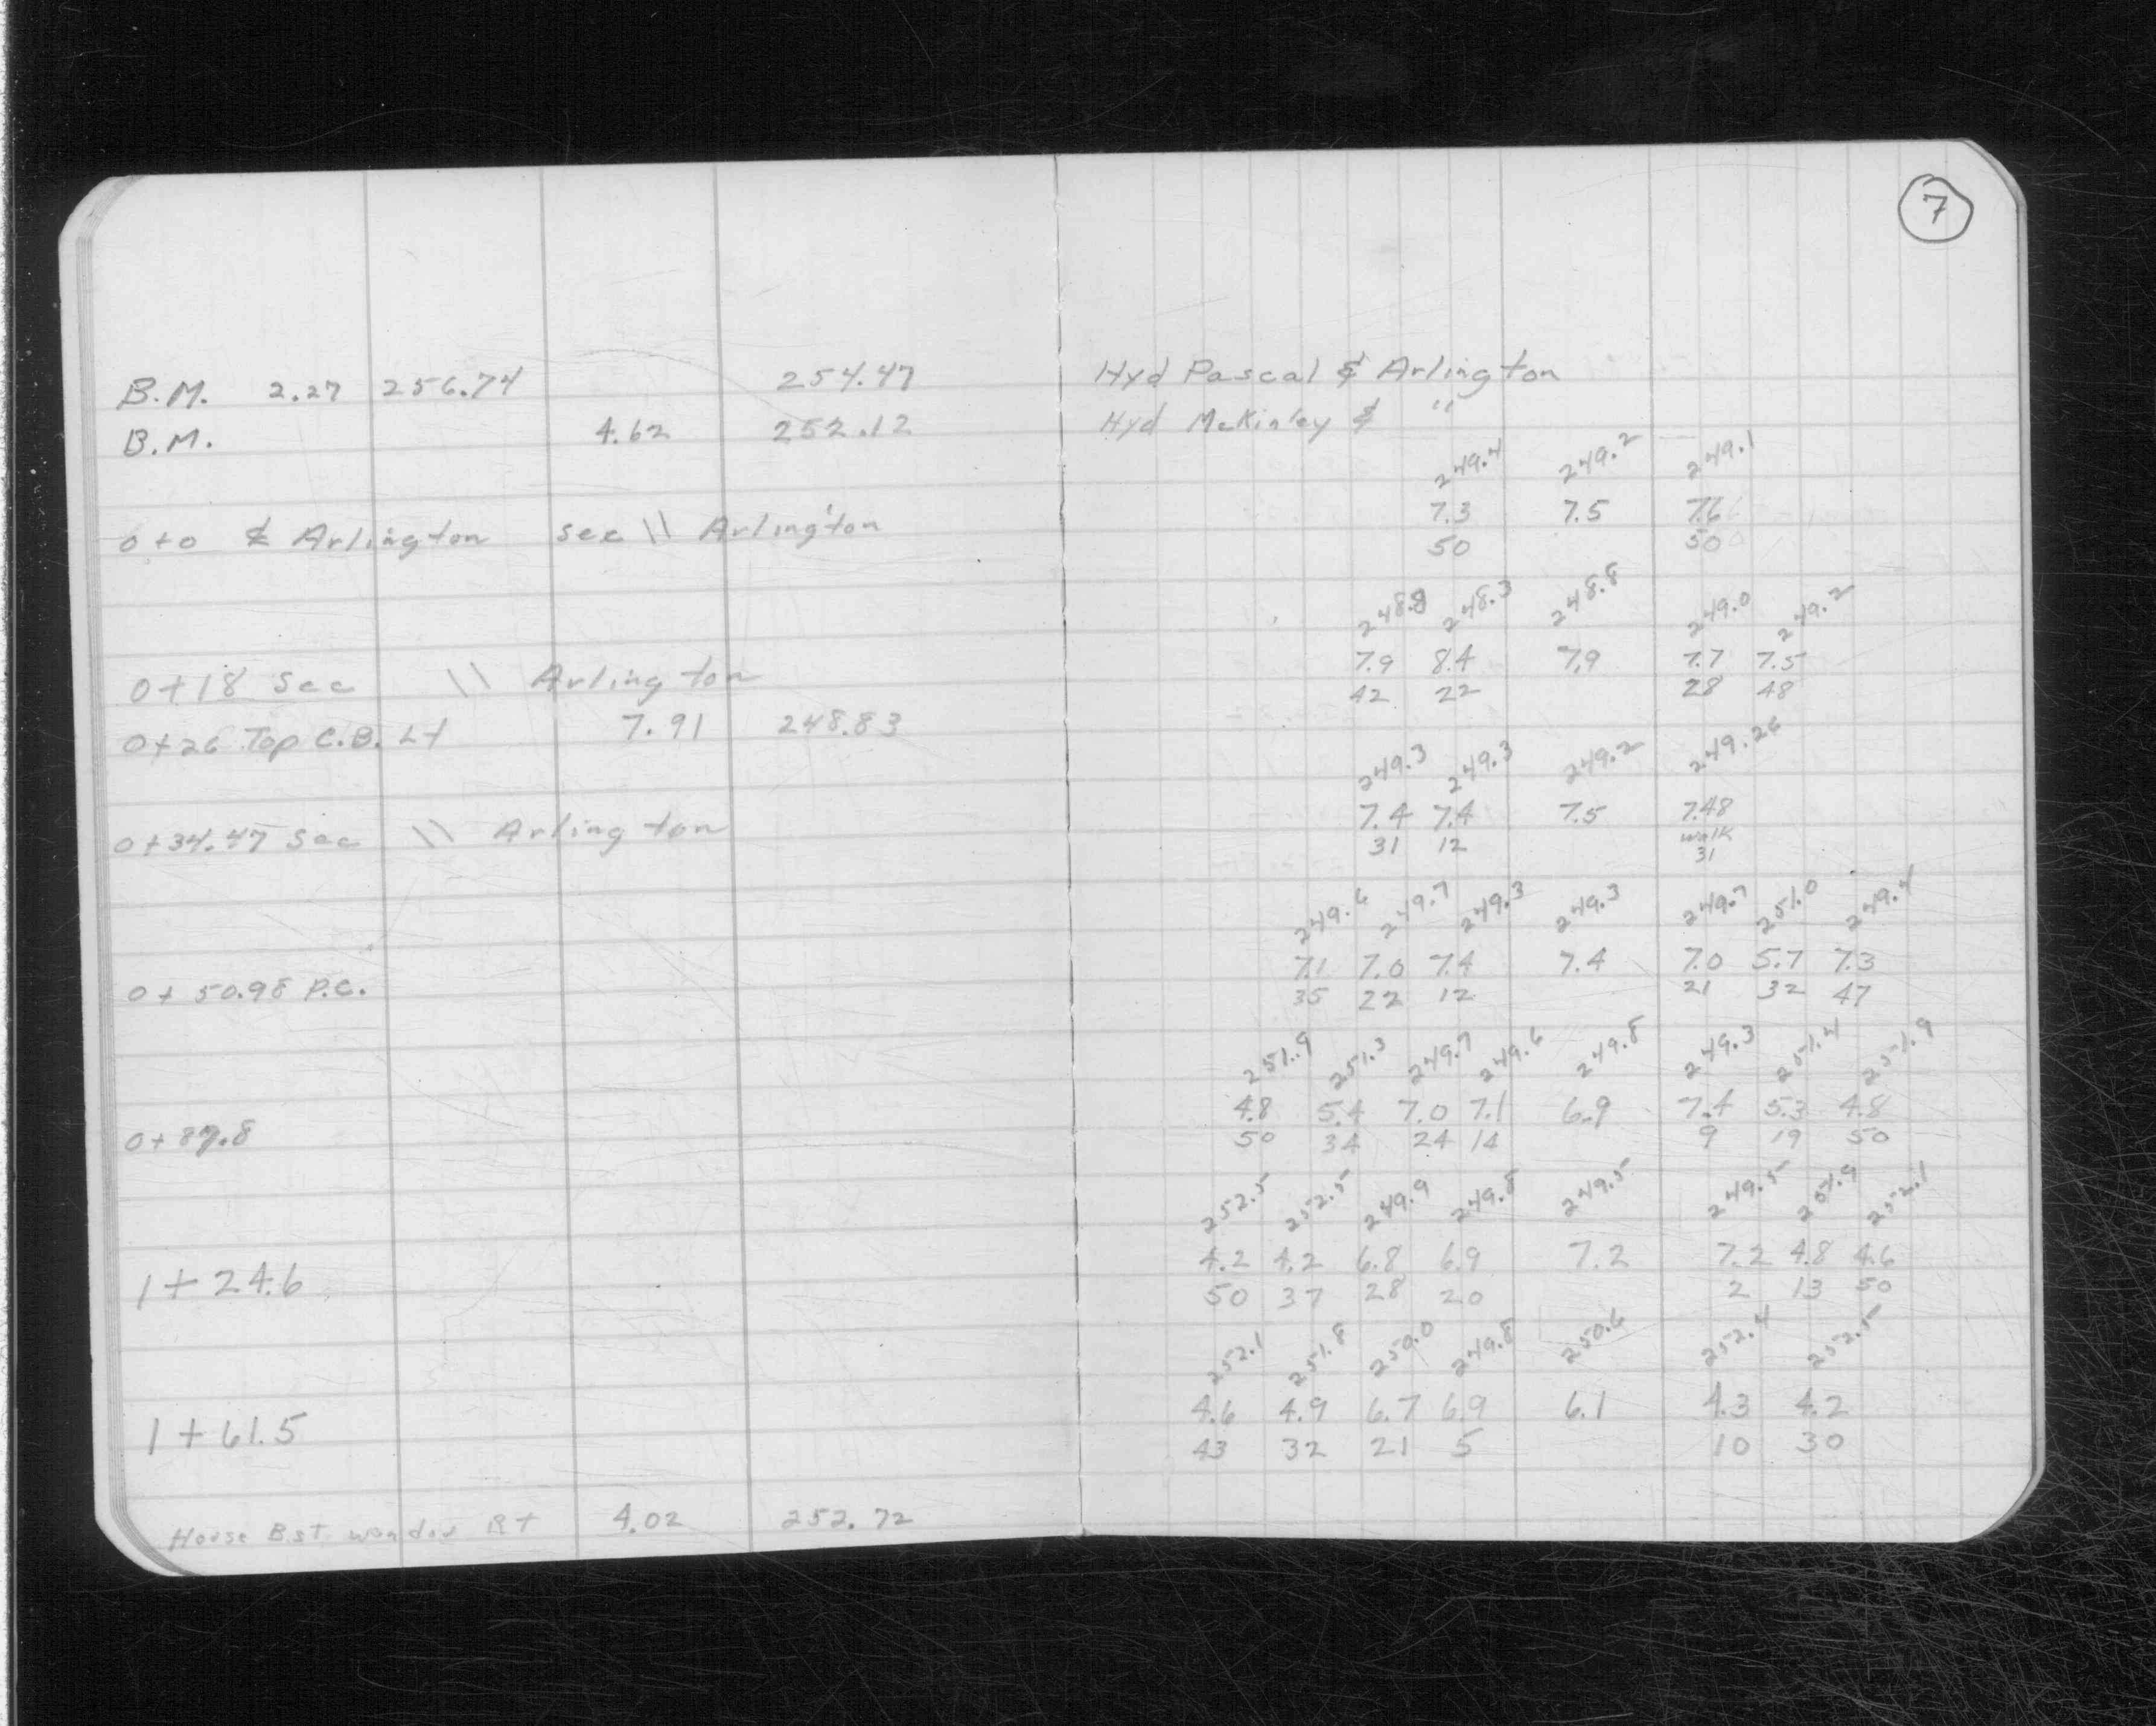 7
B.M. 2.27 256.74 254.47 Hyd Pascal & Arlington
B.M. 4.62 252.12 Hyd McKinley & "
249.4 249.2 249.1
0+0 ⅊ Arlington sec \\ Arlington 7.3 7.5 7.6
50 50
248.8 248.3 248.8 249.0 249.2
0+18 Sec \\ Arlington 7.9 8.4 7.9 7.7 7.5
42 22 28 48
0+26 Top C.B. Lt 7.91 248.83
249.3 249.3 249.2 249.26
0+34.47 Sec \\ Arlington 7.4 7.4 7.5 7.48
walk
31 12 31
249.6 249.7 249.3 249.3 249.7 251.0 249.4
0+50.98 P.C. 7.1 7.0 7.4 7.4 7.0 5.7 7.3
35 22 12 21 32 47
251.9 251.3 249.7 249.6 249.8 249.3 251.4 251.9
0+87.8 4.8 5.4 7.0 7.1 6.9 7.4 5.3 4.8
50 34 24 14 9 19 50
252.5 252.5 249.9 249.8 249.5 249.5 251.9 252.1
1+24.6 4.2 4.2 6.8 6.9 7.2 7.2 4.8 4.6
50 37 28 20 2 13 50
252.1 251.8 250.0 249.8 250.6 252.4 252.5
1+61.5 4.6 4.9 6.7 6.9 6.1 4.3 4.2
43 32 21 5 10 30
House Bst. window Rt 4.02 252.72